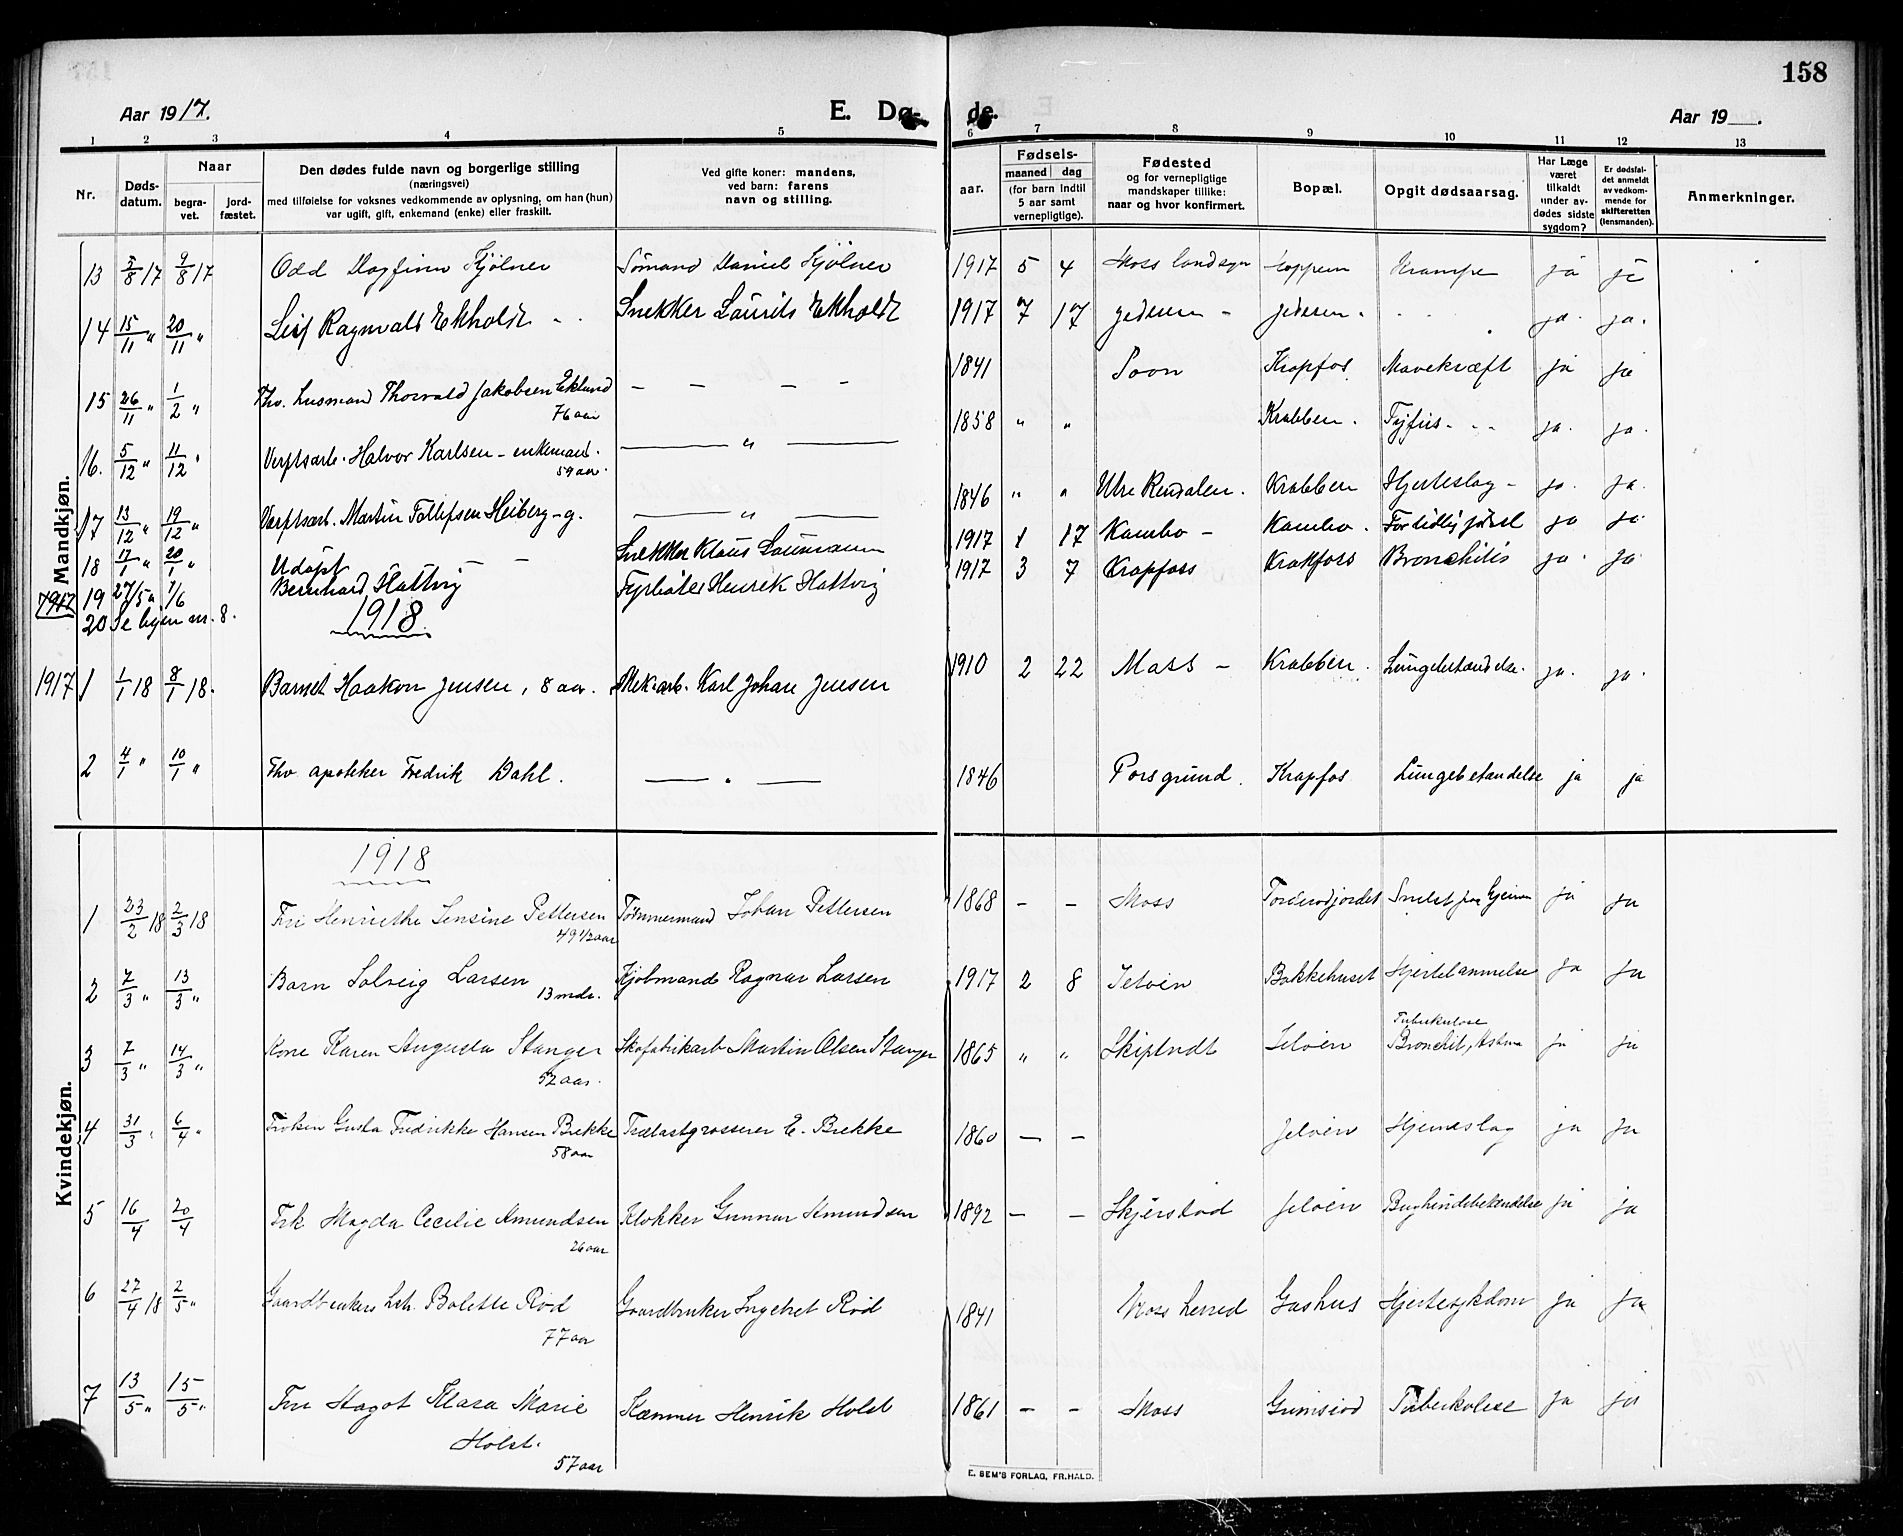 158
Aar 1917.
E. Døde.
Aar 19__.
1 2 3 4 5 6 7 8 9 10 11 12 13
Nr.
Døds-
datum.
Naar
begra-
vet.
jord-
fæstet.
Den dødes fulde navn og borgerlige stilling
(næringsvei)
med tilføielse for voksnes vedkommende av oplysning, om han (hun)
var ugift, gift, enkemand (enke) eller fraskilt.
Ved gifte koner: mandens,
ved barn: farens
navn og stilling.
aar.
Fødsels-
maaned dag
(for barn indtil
5 aar samt
vernepligtige).
Fødested
og for vernepligtige
mandskaper tillike:
naar og hvor konfirmert.
Bopæl.
Opgit dødsaarsag.
Har Læge
været
tilkaldt
under av-
dødes sidste
sygdom?
Er dødsfal-
det anmeldt
av vedkom-
mende for
skifteretten
(lensmanden).
Anmerkninger.
Mandkjøn.
13 5/8 17 9/8 17 Odd Dagfinn Kjølner Sømand Daniel Kjølner 1917 5 4 Moss landsogn Krampe ja ja
14 15/11 " 20/11 " Leif Ragnvald Ekholdt Snekker Laurits Ekholdt 1917 7 17 Jeløen Jeløen ja. ja.
15 26/11 " 1/2 " Fhv. Thorvald Jakobsen Eklund 76 aar – – – – 1841 Krapfos Mavekræft ja ja
16. 5/12 " 11/12 " Verftsarb. Halvor Karlsen – enkemand. 59 aar. — " — 1858 " " Krabben. Tyfus ja. ja.
17 13/12 " 19/12 " Verftsarb. Martin Tollefsen Heiberg – g. — " — 1846 " " Utre Rendalen. Krabben Hjerteslag – ja. ja.
18 17/1 " 20/1 " Udøpt – – Snekker Klaus Laumann 1917 1 17 Kambo – Kambo. For tidlig født ja ja
1917 19 27/5 " 1/6 Bernhard Hattvig Fyrbøter Henrik Hattvig 1917 3 7 Krapfoss Krapfoss Bronchitis ja ja
20 Se byen nr. 8.
1918.
1917 1 1/1 18 8/1 18. Barnet Haakon Jensen, 8 aar. Mek. arb. Karl Johan Jensen 1910 2 22 Moss – Krabben. Lungebetændelse. ja. ja.
2 4/1 " 10/1 " Fhv. apotheker Fredrik Dahl. — " — 1846 Porsgrund. Krapfos Lungebetændelse ja ja
Kvindekjøn.
1918
1 23/2 18 2/3 18 Fru Henriethe Jensine Pettersen 49 1/2 aar Tømmermand Johan Pettersen 1868 – – Moss Torderødjordet ja ja
2 7/3 " 13/3 " Barn Solveig Larsen 13 mdr. Kjøbmand Ragnar Larsen 1917 2 8 Jeløen Bakkehuset Hjertelammelse ja ja
3 7/3 " 14/3 " Kone Karen Augusta Stanger 52 aar. Skofabrikarb Martin Olsen Stanger 1865 " " Skiptvedt Jeløen Tuberkulose Bronchit, Astma ja ja
4 31/3 " 6/4 " Frøken Gusta Fredrikke Hansen Brekke 58 aar Trælastgrosserer E. Brekke 1860 – – Jeløen Hjerneslag ja ja
5 16/4 20/4 Frk Magda Cecilie Amundsen 26 aar Klokker Gunnar Amundsen 1892 – – Skjerstad Jeløen Bughindebetændelse ja ja
6 27/4 18 2/5 " Gaardbrukers Bolette Rød 77 aar Gaardbruker Ingebret Rød 1841 Moss herred Gashus Hjertesykdom ja ja
7 13/5 " 15/5 " Fru Hagot Klara Marie Holst. 57 aar Kæmner Henrik Holst 1861 – – Moss Grimsrød Tuberkulose ja ja
E. SEM'S FORLAG, FR.HALD.